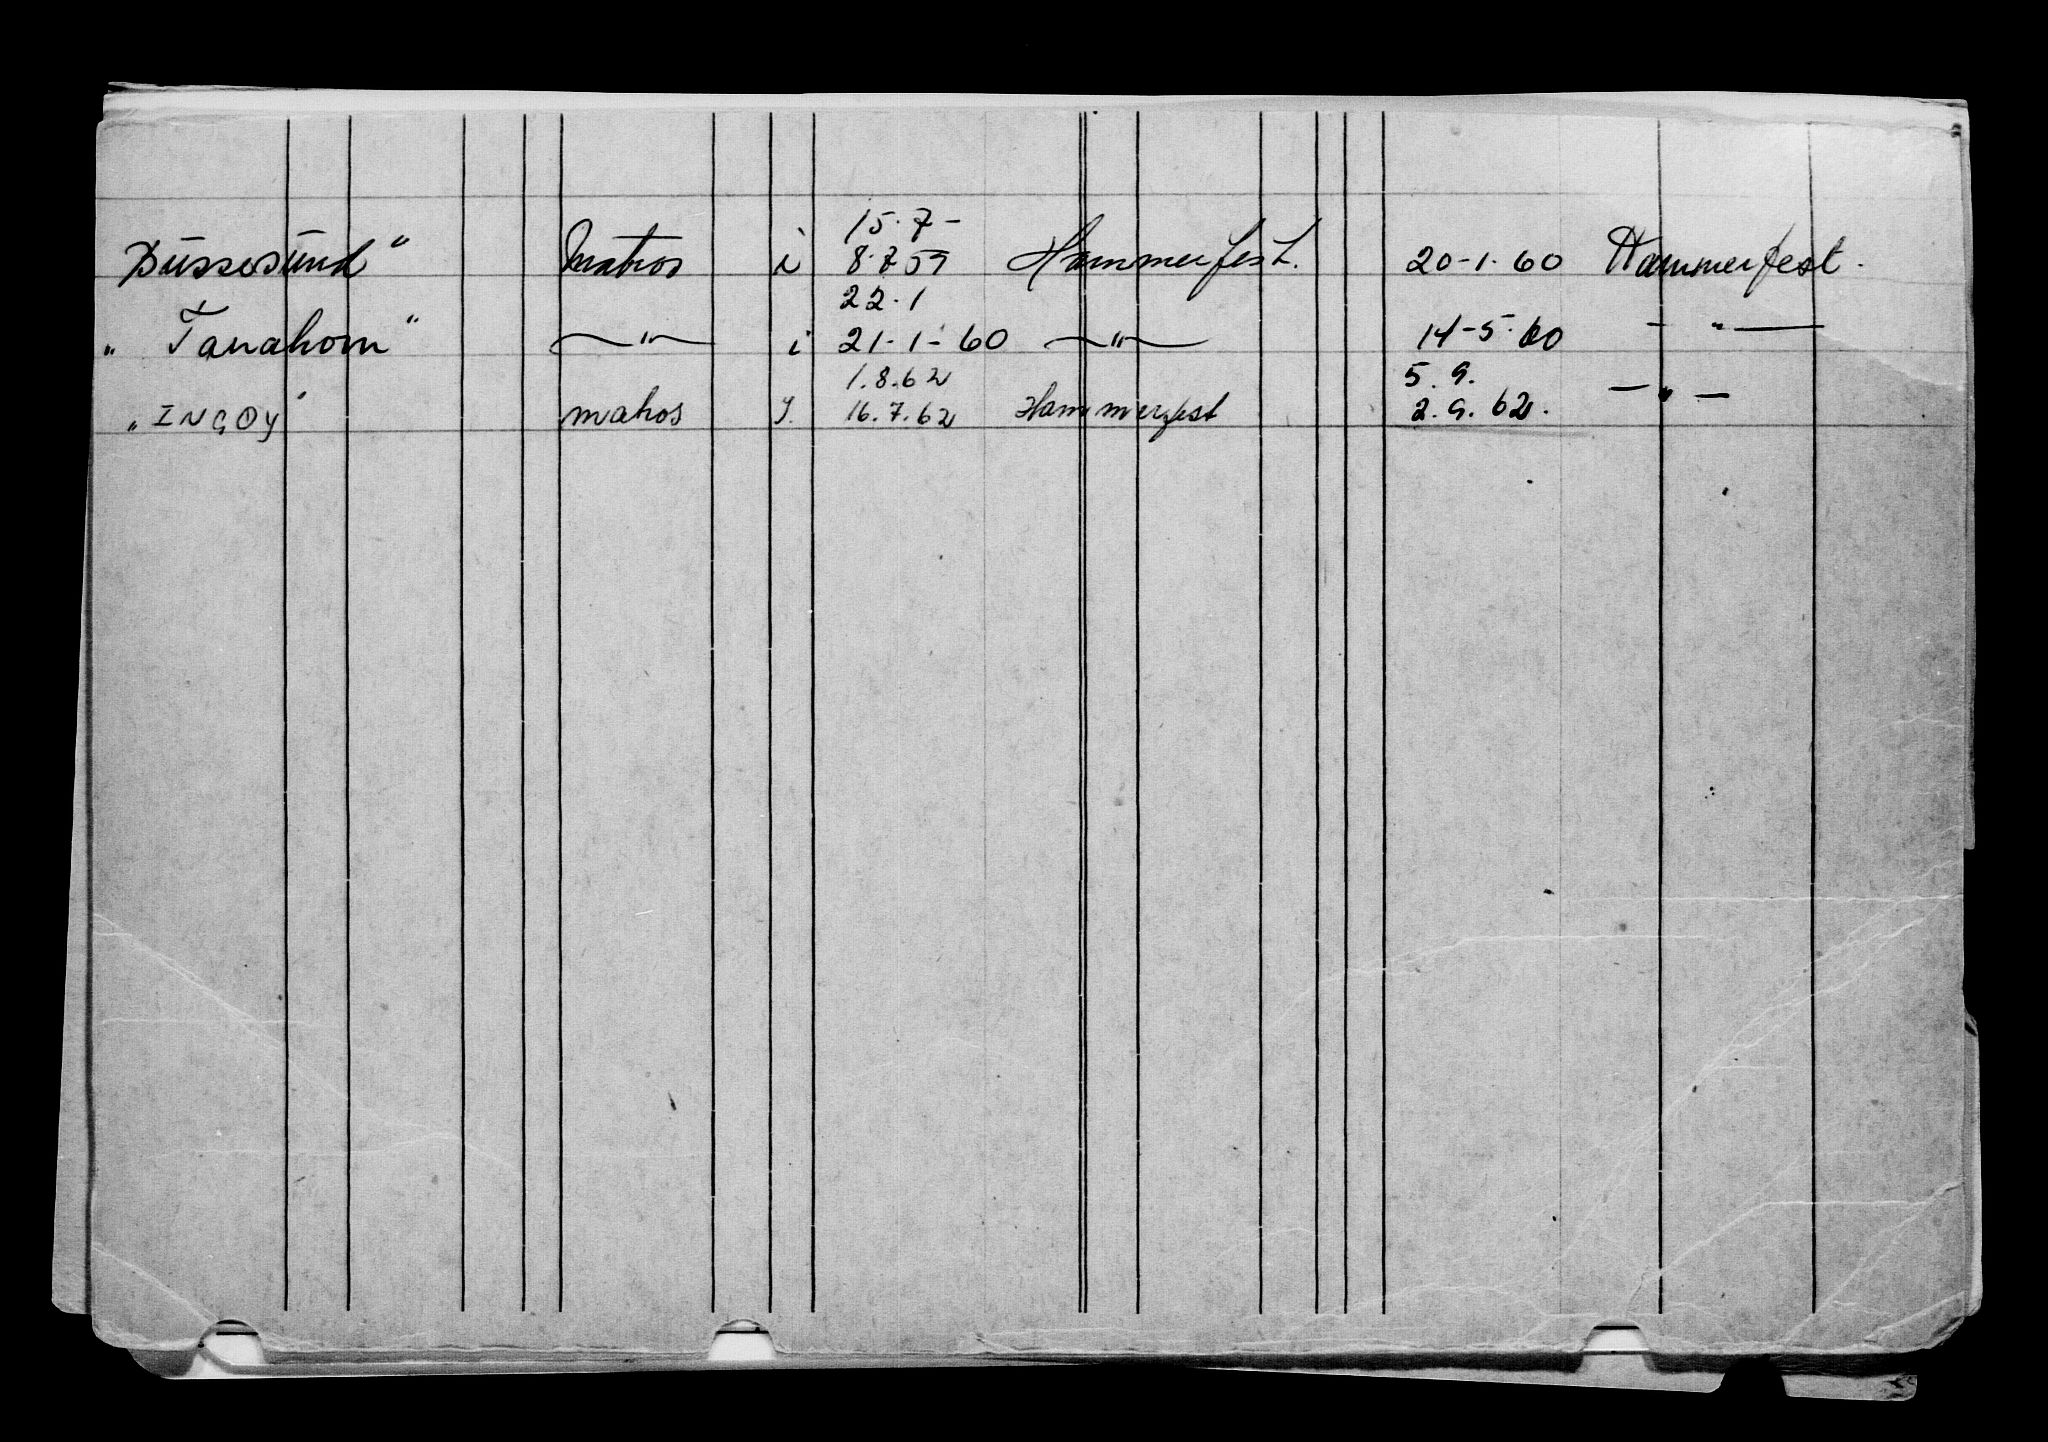 15.7-
Bussesund" matros i 8.7 59 Hammerfest. 20-1.60 Hammerfest.
22.1
" Tanahorn" —"— i 21-1-60 —"— 14-5.60 - " —
1.8.62 5.9.
"INGOY" matros J. 16.7.62 Hammerfest 2.9.62. — " —